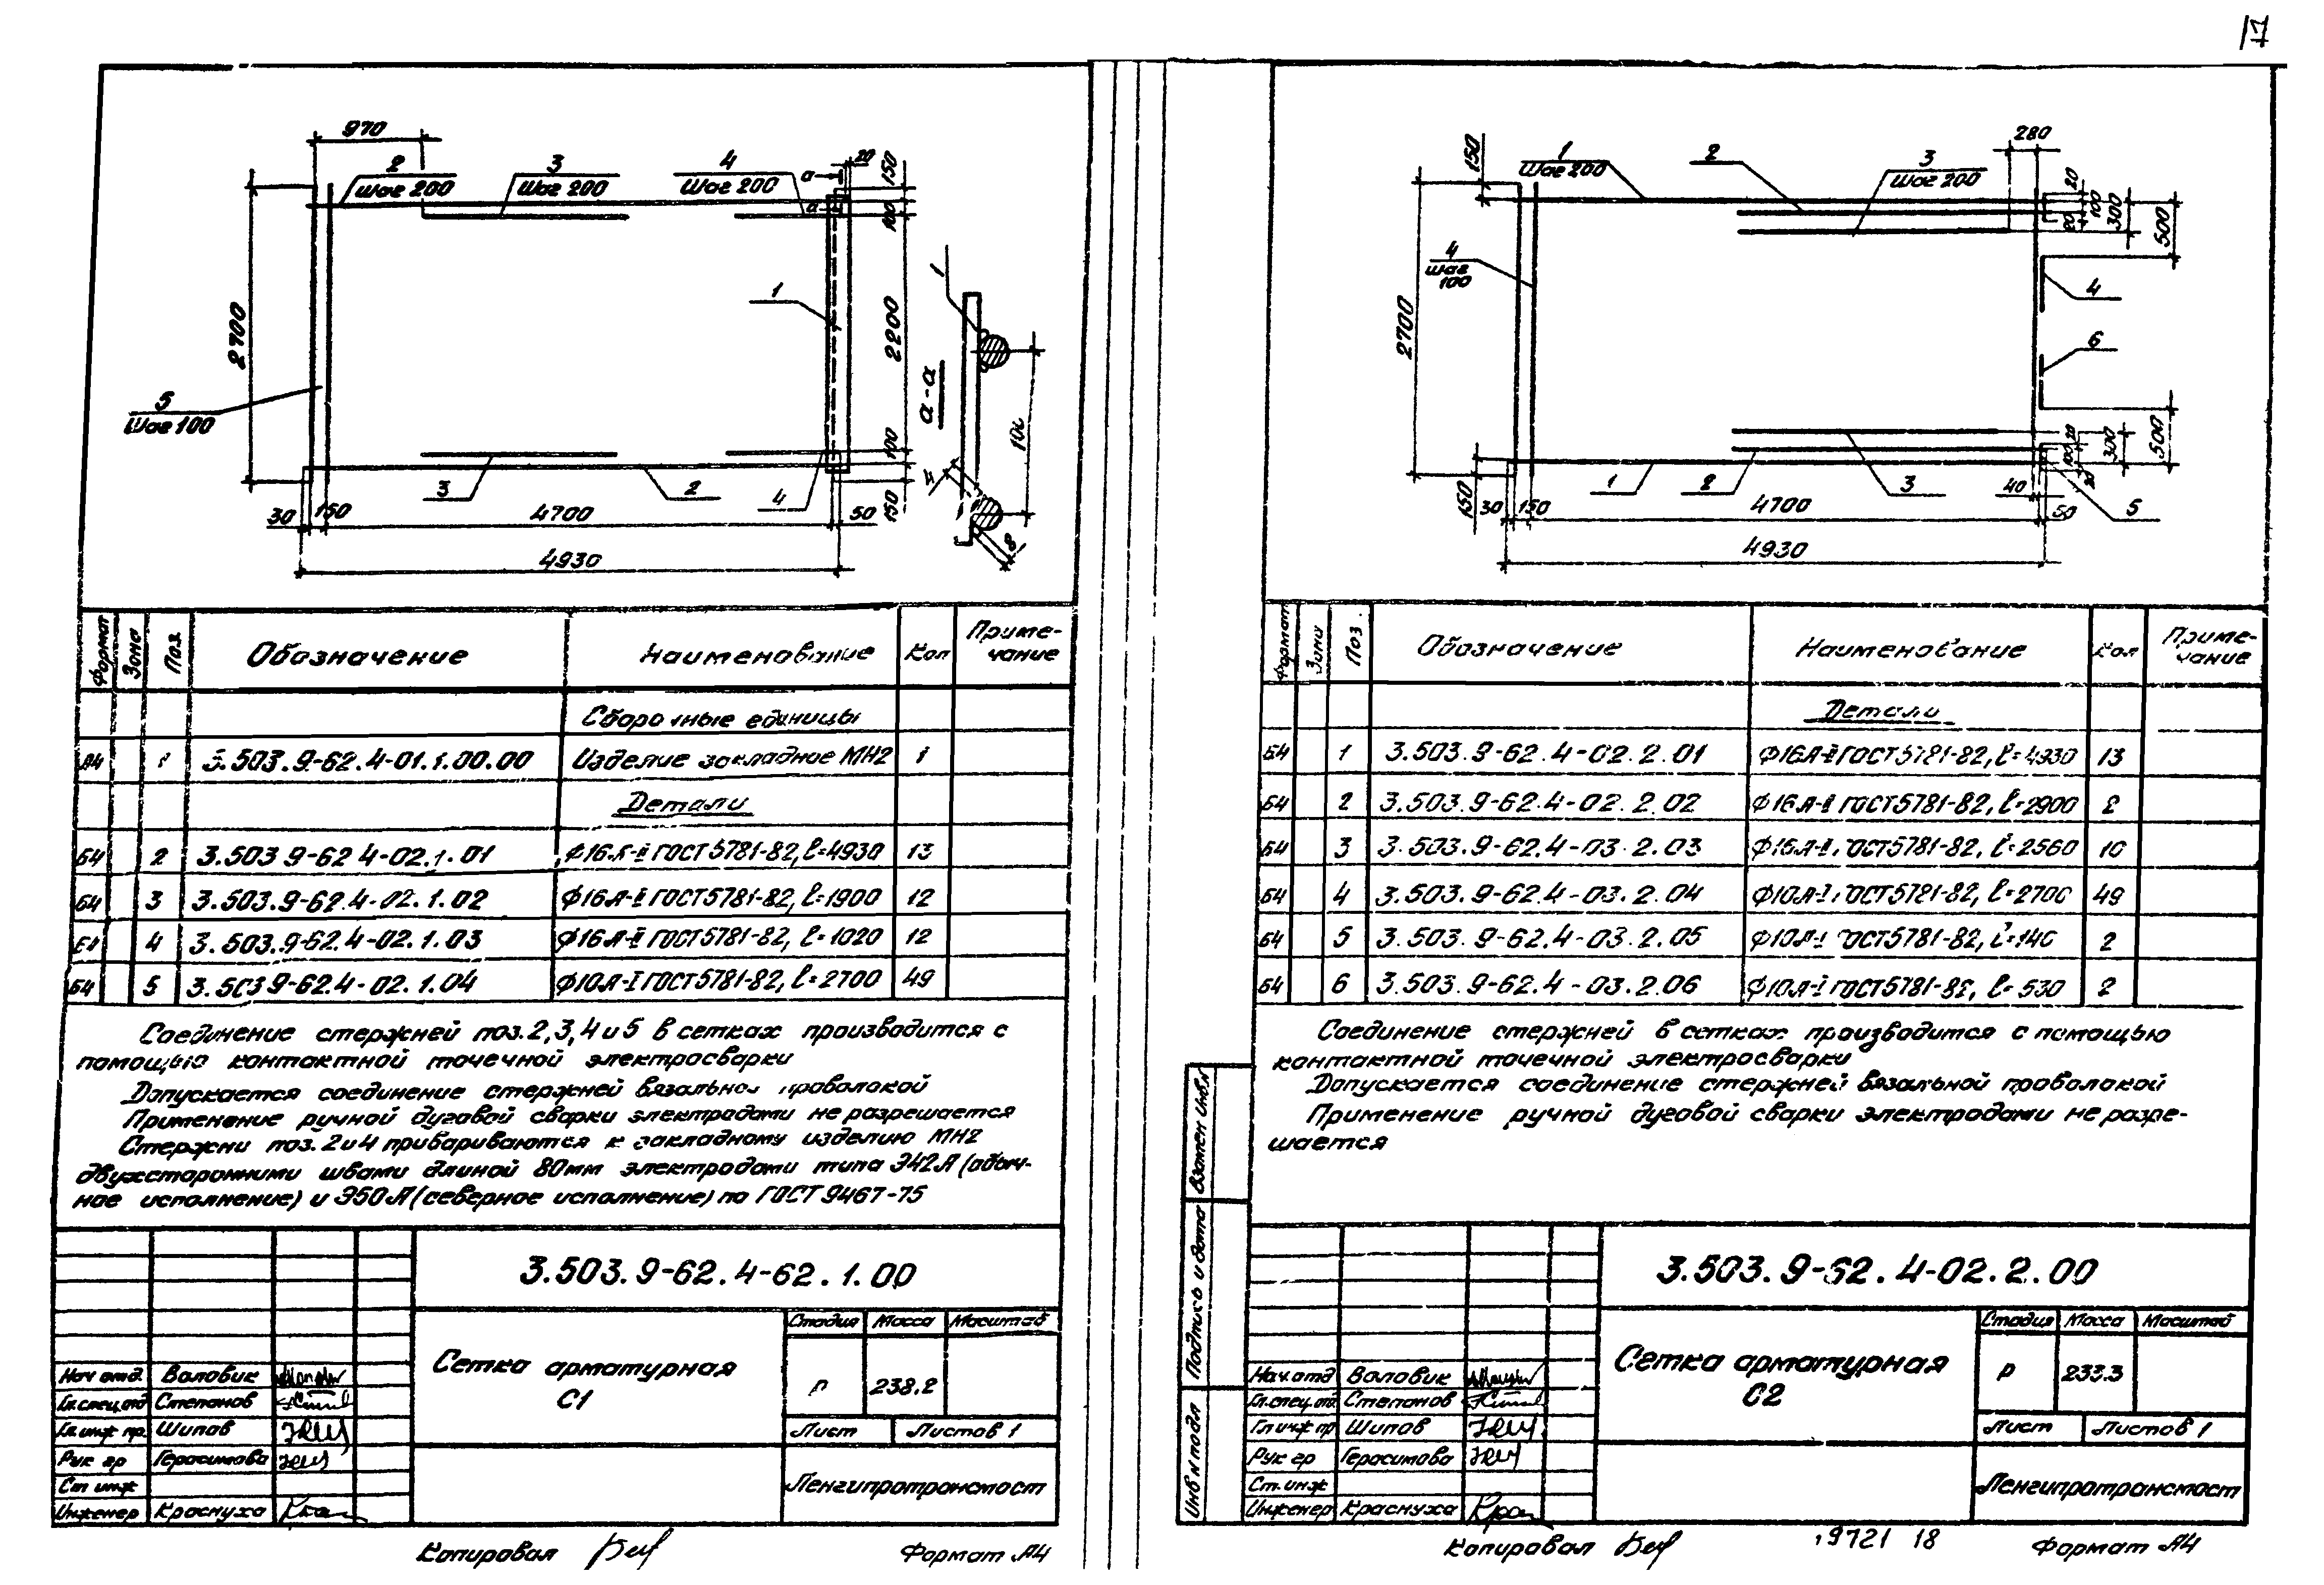 17
970
2
Шаг 200
3
Шаг 200
4
Шаг 200
а
а
20
150
100
2200
100
150
2700
5
Шаг 100
1
3
2
4
30
150
4700
50
4930
а-а
1
8
Формат
Зона
Поз.
Обозначение
Наименование
Кол
Приме-
чание
Сборочные единицы
А4 1 3.503.9-62.4-01.1.00.00 Изделие закладное МН2 1
Детали
Б4 2 3.503 9-62 4-02.1.01 Ф16А-II ГОСТ 5781-82, ℓ=4930 13
Б4 3 3.503.9-62.4-02.1.02 Ф16А-II ГОСТ 5781-82, ℓ=1900 12
Б4 4 3.503.9-62.4-02.1.03 Ф16А-II ГОСТ 5781-82, ℓ=1020 12
Б4 5 3.503 9-62.4-02.1.04 Ф10А-I ГОСТ 5781-82, ℓ=2700 49
Соединение стержней поз. 2, 3, 4 и 5 в сетках производится с
помощью контактной точечной электросварки
Допускается соединение стержней вязальной проволокой
Применение ручной дуговой сварки электродами не разрешается
Стержни поз. 2 и 4 привариваются к закладному изделию МН2
двухсторонними швами длиной 80мм электродами типа Э42А (обыч-
ное исполнение) и Э50А (северное исполнение) по ГОСТ 9467-75
3.503.9-62.4-62.1.00
Сетка арматурная
С1
Стадия Масса Масштаб
Р 238.2
Лист Листов 1
Ленгипротрансмост
Нач отд. Воловик
Гл.спец.отд Степанов
Гл.инж пр. Шипов
Рук гр Герасимова
Ст инж
Инженер Краснуха
Копировал
Формат А4
150
1
Шаг 200
2
3
Шаг 200
280
20
100
20
300
500
4
шаг
100
2700
4
6
20
100
20
300
500
1
2
3
40
5
150
30
150
4700
50
4930
Формат
Зона
Поз.
Обозначение
Наименование
Кол
Приме-
чание
Детали
Б4 1 3.503.9-62.4-02.2.01 Ф16А-II ГОСТ 5781-82, ℓ=4930 13
Б4 2 3.503.9-62.4-02.2.02 Ф16А-II ГОСТ 5781-82, ℓ=2900 2
Б4 3 3.503.9-62.4-03.2.03 Ф16А-II ГОСТ 5781-82, ℓ=2560 10
Б4 4 3.503.9-62.4-03.2.04 Ф10А-I ГОСТ 5781-82, ℓ=2700 49
Б4 5 3.503.9-62.4-03.2.05 Ф10А-I ГОСТ 5781-82, ℓ=140 2
Б4 6 3.503.9-62.4-03.2.06 Ф10А-I ГОСТ 5781-82, ℓ=530 2
Соединение стержней в сетках производится с помощью
контактной точечной электросварки
Допускается соединение стержней вязальной проволокой
Применение ручной дуговой сварки электродами не разре-
шается
Взамен инв.N
Подпись и дата
Инв N подл
3.503.9-62.4-02.2.00
Сетка арматурная
С2
Стадия Масса Масштаб
Р 233.3
Лист Листов 1
Ленгипротрансмост
Нач.отд Воловик
Гл.спец.отд. Степанов
Гл инж пр Шипов
Рук гр Герасимова
Ст.инж
Инженер Краснуха
Копировал
19721 18
Формат А4